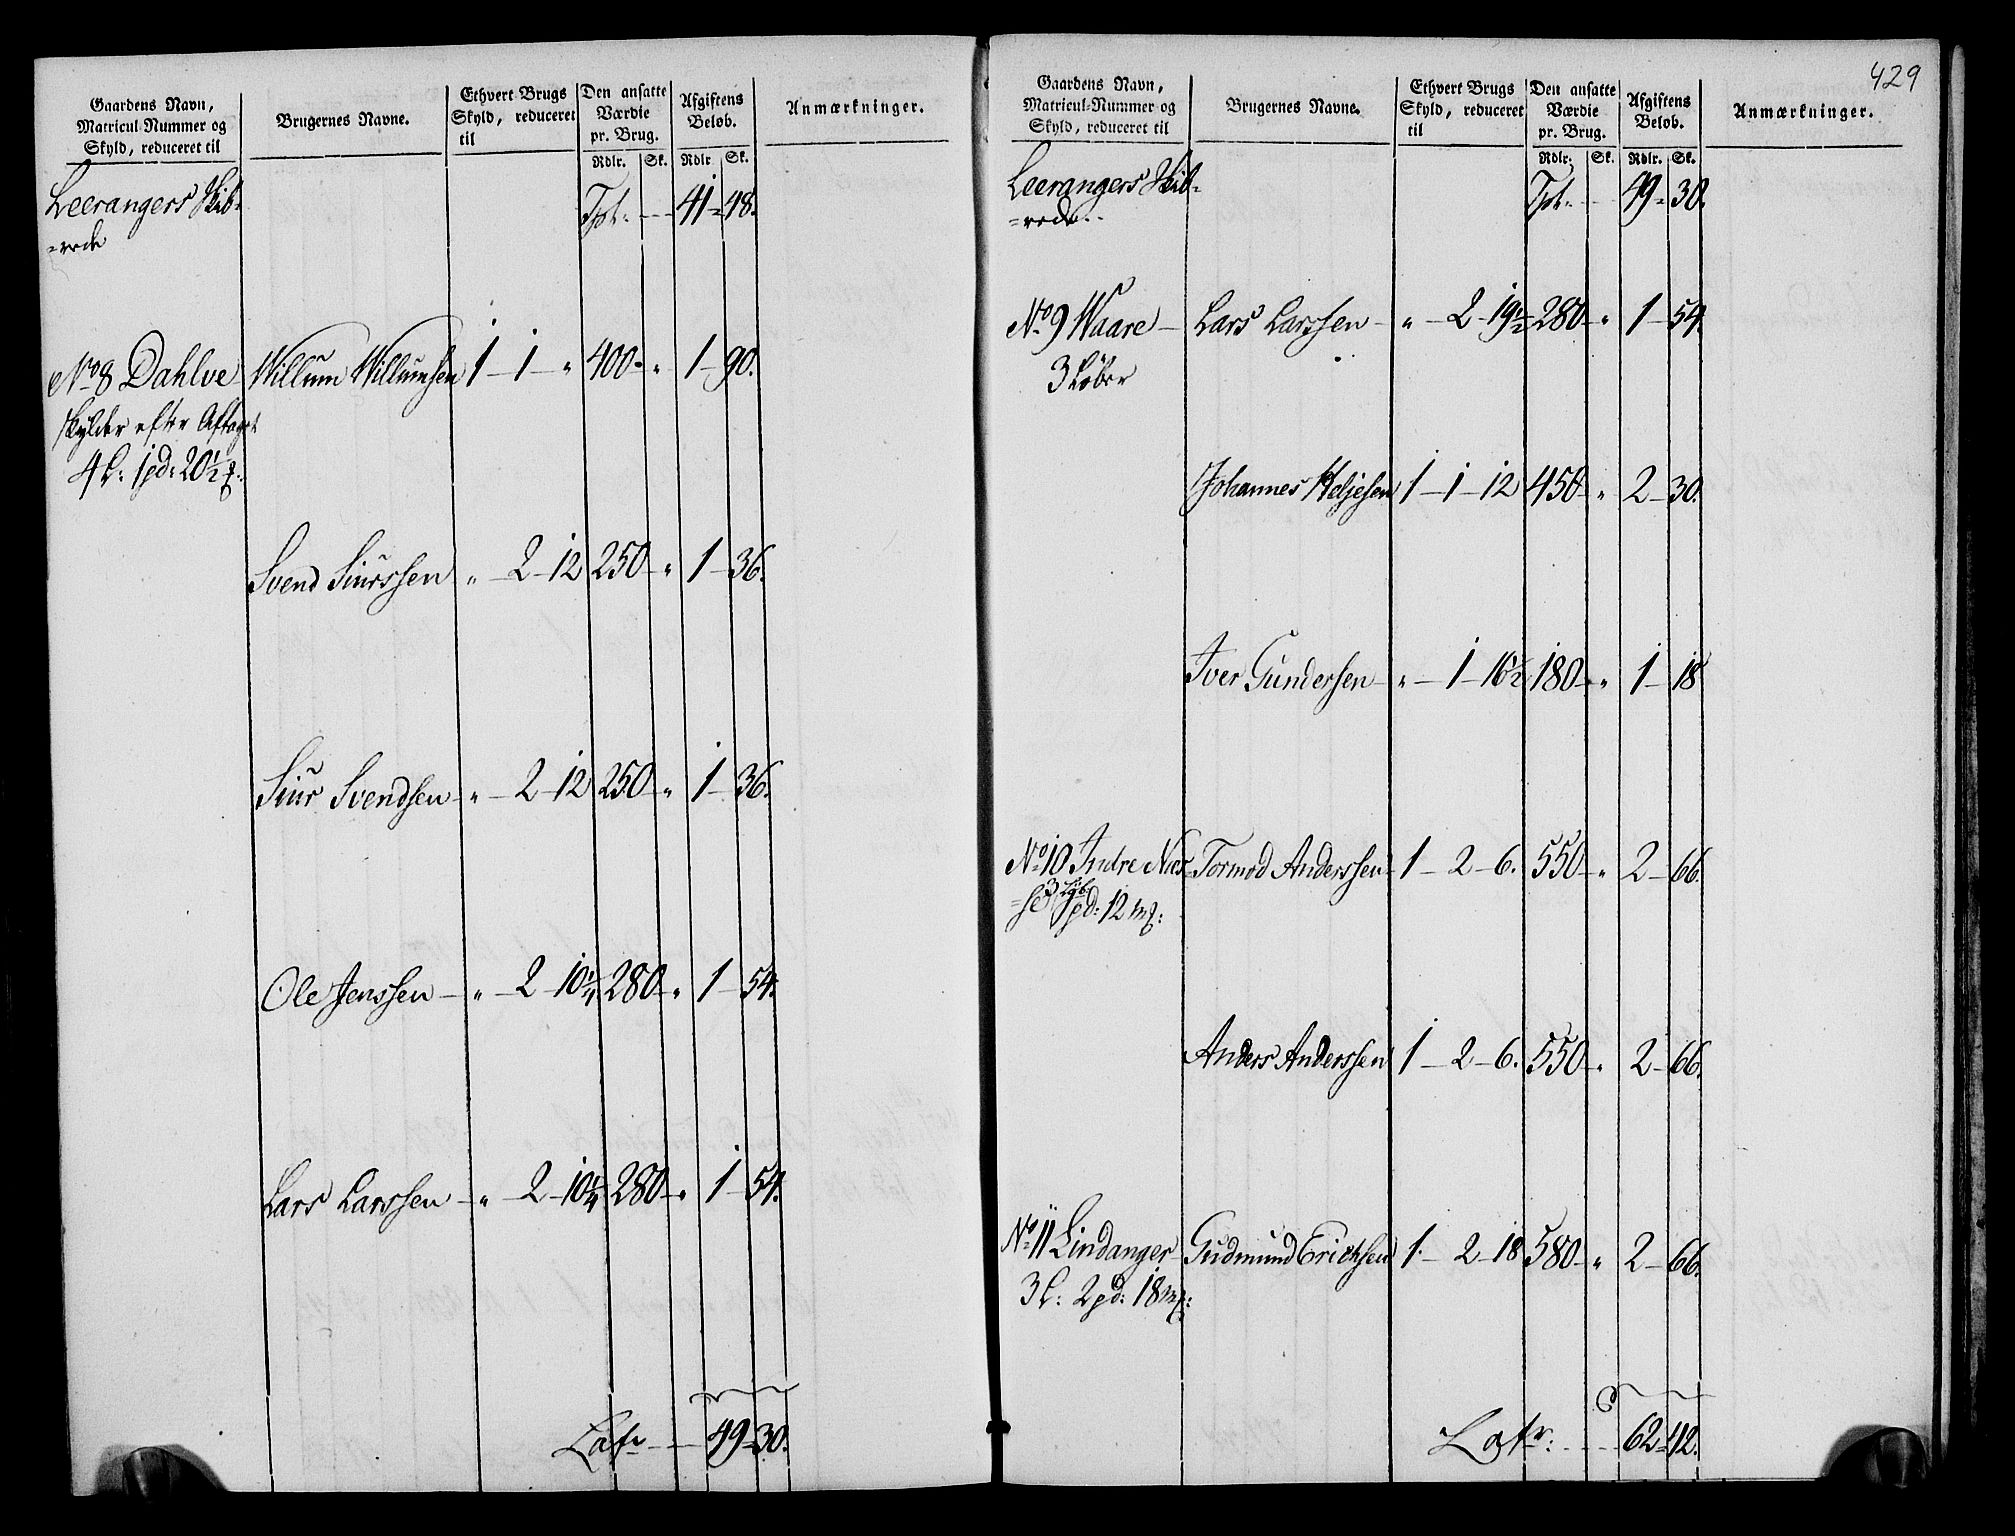 Gaardens Navn,
Matricul-Nummer og
Skyld, reduceret til
Brugernes Navne.
Ethvert Brugs
Skyld, reduceret
til
Den ansatte
Værdie
pr. Brug.
Rdlr. Sk.
Afgiftens
Beløb.
Rdlr. Sk.
Anmærkninger.
Leerangers Skib-
-rede Tpt. 41 - 48.
No 8 Dahlve Willum Willumsen 1 - 1 - " 400 - " 1 - 90.
skylder efter Aftaget
4 L: 1 pd: 20 1/2 mk:
Svend Siurssen " - 2 - 12 250 - " 1 - 36.
Siur Svendsen - " - 2 - 12 250 - " 1 - 36.
Ole Jenssen - " - 2 - 10 1/4 280 - " 1 - 54.
Lars Larssen - " - 2 - 10 1/4 280 - " 1 - 54.
Latr 49 - 30.
429
Gaardens Navn,
Matricul-Nummer og
Skyld, reduceret til
Brugernes Navne.
Ethvert Brugs
Skyld, reduceret
til
Den ansatte
Værdie
pr. Brug.
Rdlr. Sk.
Afgiftens
Beløb.
Rdlr. Sk.
Anmærkninger.
Leerangers Skib-
-rede Tpt. 49 - 30.
No 9 Waare - Lars Larssen - " - 2 - 19 1/2 280 - " 1 - 54.
3 Løber
Johannes Heljesen 1 - 1 - 12 450 - " 2 - 30.
Iver Gundersen - " - 1 - 16 1/2 180 - " 1 - 18
No 10 Indre Næs- Tormod Anderssen 1 - 2 - 6. 550 - " 2 - 66.
-se 3 Løb 1 pd: 12 mk:
Anders Anderssen 1 - 2 - 6. 550 - " 2 - 66.
No 11 Lindanger Gudmund Erichsen 1 - 2 - 18 580 - " 2 - 66.
3 L: 2 pd: 18 mk:
Latr: 62 - 42.